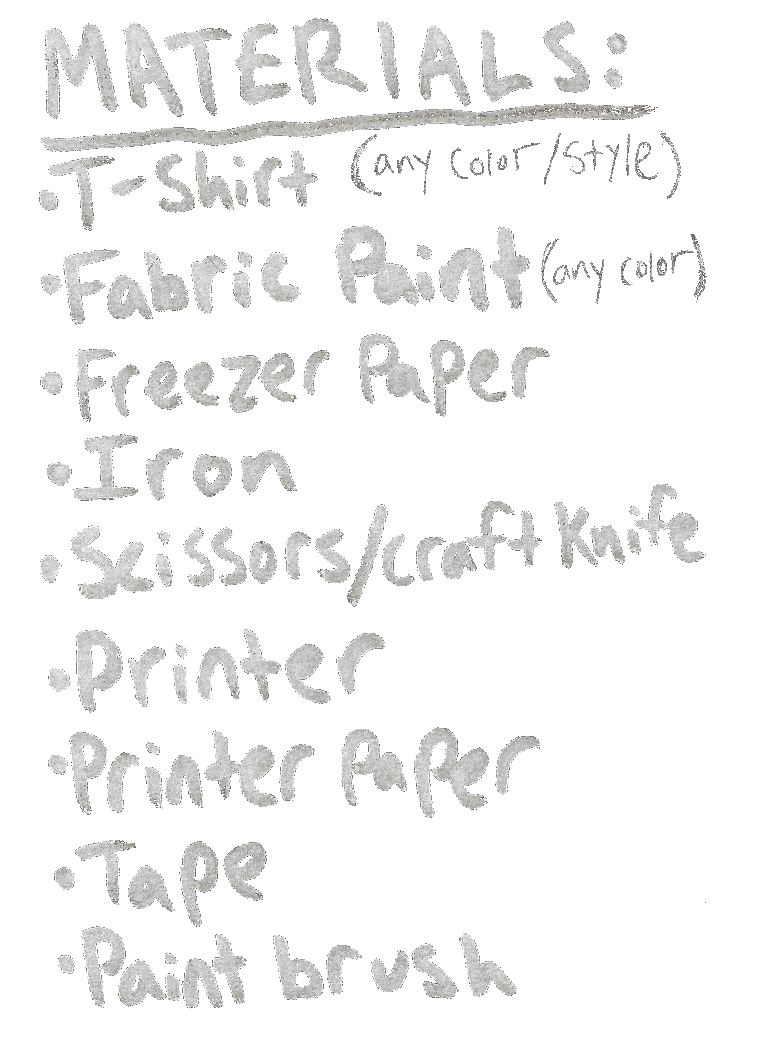 MATERIALS:
• T-Shirt (any color/style)
• Fabric Paint (any color)
• Freezer Paper
• Iron
• Scissors/craft Knife
• Printer
• Printer Paper
• Tape
• Paint brush